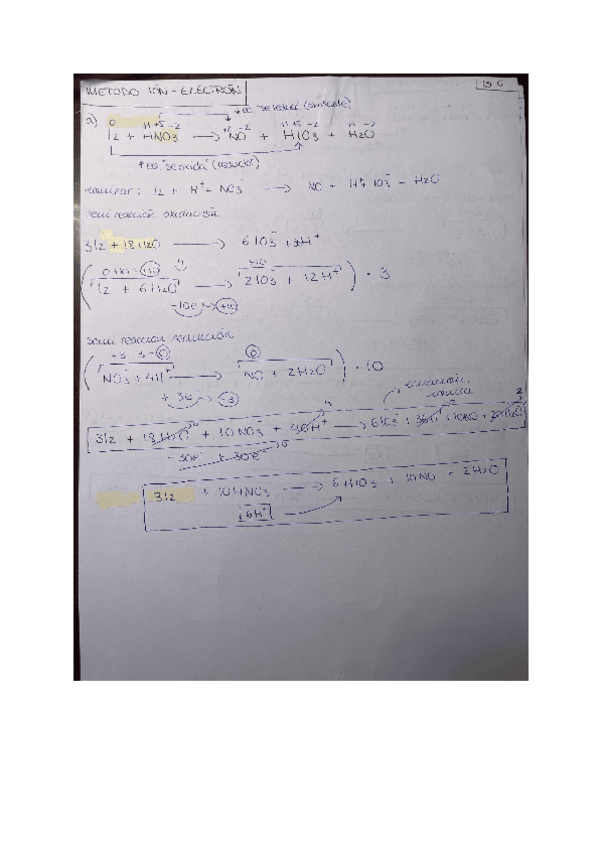 METODO IÓN-ELECTRÓN
a) 0 +5 -2 +2 -2 +5 -2
I2 + HNO3 → NO + HIO3 + H2O
se reduce (oxidante)
se oxida (reductor)
ionizar: I2 + H+ + NO3 → NO + H+ IO3- - H2O
semi reacción oxidación
3I2 + 18H2O → 6IO3-
( I2 + 6H2O → 2IO3- + 12H+ ) · 3
-10e
semi reacción reducción
( NO3- + 4H+ → NO + 2H2O ) · 10
+ 3e -3
ecuación iónica
3I2 + 18H2O + 10NO3 + 40H+ → 6IO3- + 36H+ + 10NO + 20H2O
-30e + 30e-
3I2 + 10HNO3 → 6HIO3 + 10NO + 2H2O
6H+